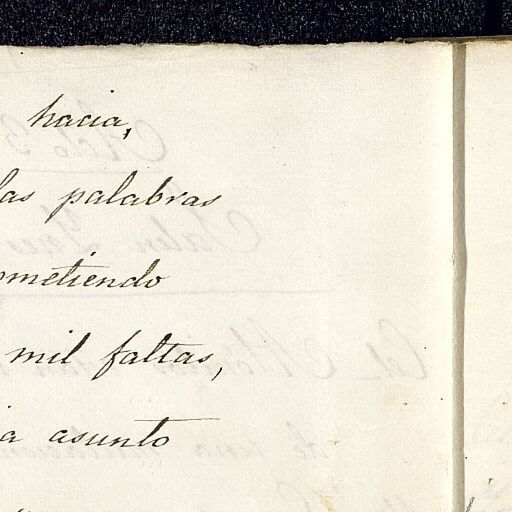 hacia,
las palabras
ometiendo
mil faltas,
ia asunto